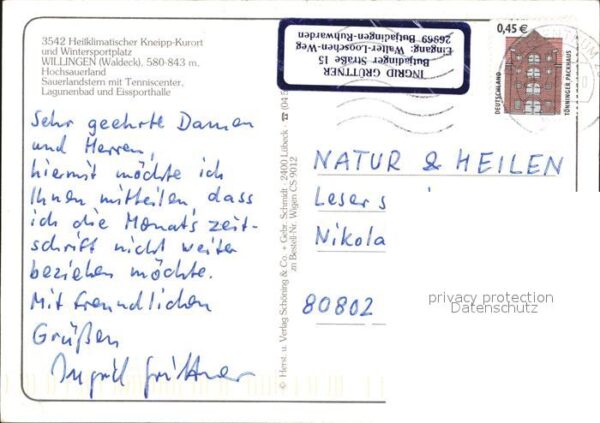 3542 Heilklimatischer Kneipp-Kurort
und Wintersportplatz
WILLINGEN (Waldeck). 580-843 m.
Hochsauerland
Sauerlandstern mit Tenniscenter,
Lagunenbad und Eissporthalle
Sehr geehrte Damen
und Herren,
hiermit möchte ich
Ihnen mitteilen dass
ich die Monatszeit-
schrift nicht weiter
beziehen möchte.
Mit freundlichen
Grüßen
Ingrid Grüttner
© Herst. u. Verlag Schöning & Co. + Gebr. Schmidt · 2400 Lübeck · ☎ (04 5
zu Bestell-Nr. Wigen CS 9012
INGRID GRÜTTNER
Butjadinger Straße 15
Eingang: Walter-Looschen-Weg
26969 Butjadingen-Ruhwarden
0,45 €
DEUTSCHLAND
TÖNNINGER PACKHAUS
NATUR & HEILEN
Lesers
Nikola
80802
privacy protection
Datenschutz